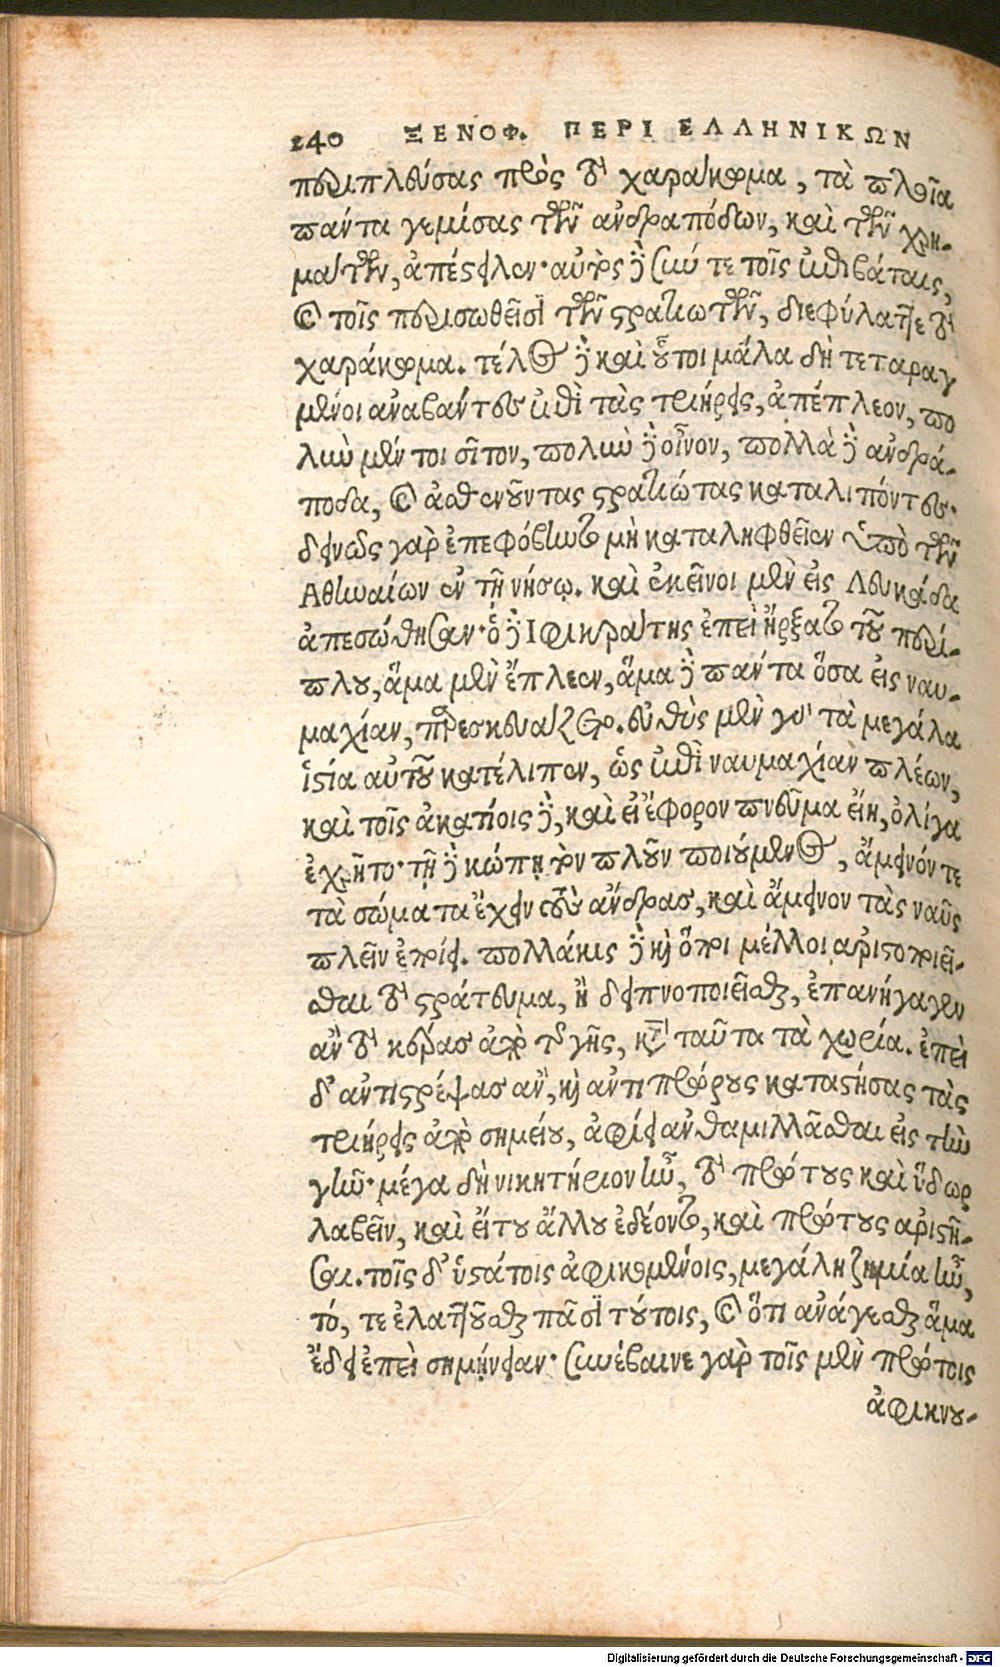 240 ΞΕΝΟΦ. ΠΕΡΙ ΕΛΛΗΝΙΚΩΝ
περιπλεύσας πρὸς τὸ χαράκωμα, τὰ πλοῖα
πάντα γεμίσας τῶν ἀνδραπόδων, καὶ τῶν χρη-
μάτων, ἀπέστελεν· αὐτὸς δὲ σύν τε τοῖς ἐπιβάταις,
καὶ τοῖς περισωθεῖσι τῶν στρατιωτῶν, διεφύλαττε τὸ
χαράκωμα. τέλος δὲ καὶ οὗτοι μάλα δὴ τεταραγ
μένοι ἀναβάντες ἐπὶ τὰς τριήρεις, ἀπέπλεον, πο
λὺν μέν τοι σῖτον, πολὺν δὲ οἶνον, πολλὰ δὲ ἀνδρά-
ποδα, καὶ ἀσθενοῦντας στρατιώτας καταλιπόντες.
δεινῶς γὰρ ἐπεφόβηντο μὴ καταληφθεῖεν ὑπὸ τῶν
Ἀθηναίων ἐν τῇ νήσῳ. καὶ ἐκεῖνοι μὲν εἰς Λευκάδα
ἀπεσώθησαν· ὁ δὲ Ἰφικράτης ἐπεὶ ἤρξατο τοῦ περί-
πλου, ἅμα μὲν ἔπλεεν, ἅμα δὲ πάντα ὅσα εἰς ναυ-
μαχίαν, παρεσκευάζετο. εὐθὺς μὲν γὰρ τὰ μεγάλα
ἱστία αὐτοῦ κατέλιπεν, ὡς ἐπὶ ναυμαχίαν πλέων,
καὶ τοῖς ἀκατίοις δὲ, καὶ εἰ ἔφορον πνεῦμα εἴη, ὀλίγα
ἐχρῆτο· τῇ δὲ κώπῃ τὸν πλοῦν ποιούμενος, ἄμεινόν τε
τὰ σώματα ἔχειν τοὺς ἄνδρας, καὶ ἄμεινον τὰς ναῦς
πλεῖν ἐποίει. πολλάκις δὲ καὶ ὅποι μέλλοι ἀριστοποιεῖ-
σθαι τὸ στράτευμα, ἢ δειπνοποιεῖσθαι, ἐπανήγαγεν
ἂν τὸ κέρας ἀπὸ τῆς γῆς, κατὰ ταῦτα τὰ χωρία. ἐπεὶ
δ' ἀντιστρέψας ἂν, καὶ ἀντιπρώρους καταστήσας τὰς
τριήρεις ἀπὸ σημείου, ἀφίει ἀνθαμιλλᾶσθαι εἰς τὴν
γῆν· μέγα δὴ νικητήριον ἦν, τὸ πρώτους καὶ ὕδωρ
λαβεῖν, καὶ εἴ του ἄλλου ἐδέοντο, καὶ πρώτους ἀριστῆ-
σαι. τοῖς δ' ὑστάτοις ἀφικομένοις, μεγάλη ζημία ἦν,
τό, τε ἐλαττοῦσθαι πᾶσι τούτοις, καὶ ὅτι ἀνάγεσθαι ἅμα
ἔδει ἐπεὶ σημήνειαν· συνέβαινε γὰρ τοῖς μὲν πρώτοις
ἀφικνου-
Digitalisierung gefördert durch die Deutsche Forschungsgemeinschaft - DFG